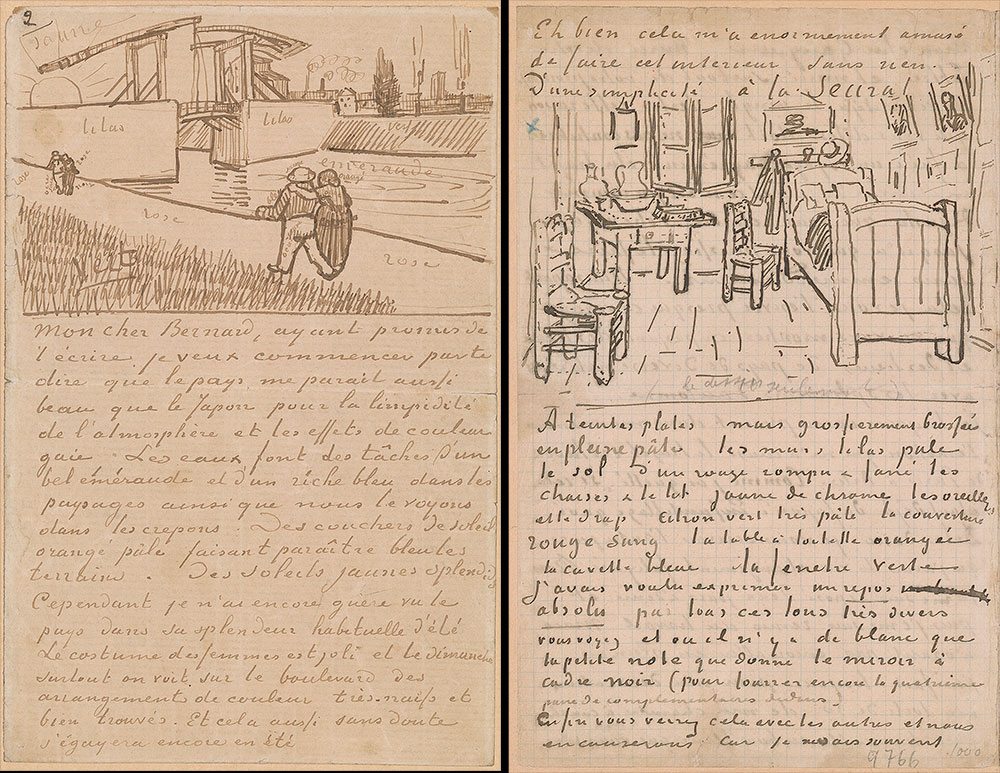 2
jaune
lilas
lilas
vert
emeraude
rose
rose
rose
vert
Mon cher Bernard, ayant promis de
t'écrire je veux commencer par te
dire que le pays me parait aussi
beau que le Japon pour la limpidité
de l'atmosphère et les effets de couleur
gaie. Les eaux font des tâches d'un
bel éméraude et d'un riche bleu dans les
paysages ainsi que nous le voyons
dans les crepons. Des couchers de soleil
orangé pâle faisant paraître bleu les
terrains. Des soleils jaunes splendides
Cependant je n'ai encore guère vu le
pays dans sa splendeur habituelle d'été
Le costume des femmes est joli et le dimanche
surtout on voit sur le boulevard des
arrangements de couleur très-naifs et
bien trouvés. Et cela aussi sans doute
s'égayera encore en été
Eh bien cela m'a enormement amusé
de faire cet interieur sans rien.
D'une simplicité à la Seurat
A teintes plates mais grossierement brossées
en pleine pâte les murs lilas pale
le sol d'un rouge rompu & fané les
chaises & le lit jaune de chrome les oreillers
et le drap citron vert très pâle la couverture
rouge sang la table à toilette orangée
la cuvette bleue la fenetre verte
J'avais voulu exprimer un repos
absolu par tous ces tons très divers
vous voyez et ou il n'y a de blanc que
la petite note que donne le miroir à
cadre noir (pour fourrer encore la quatrième
paire de complementaires dedans)
Enfin vous verrez cela avec les autres et nous
en causerons car je ne sais souvent
9766
1000